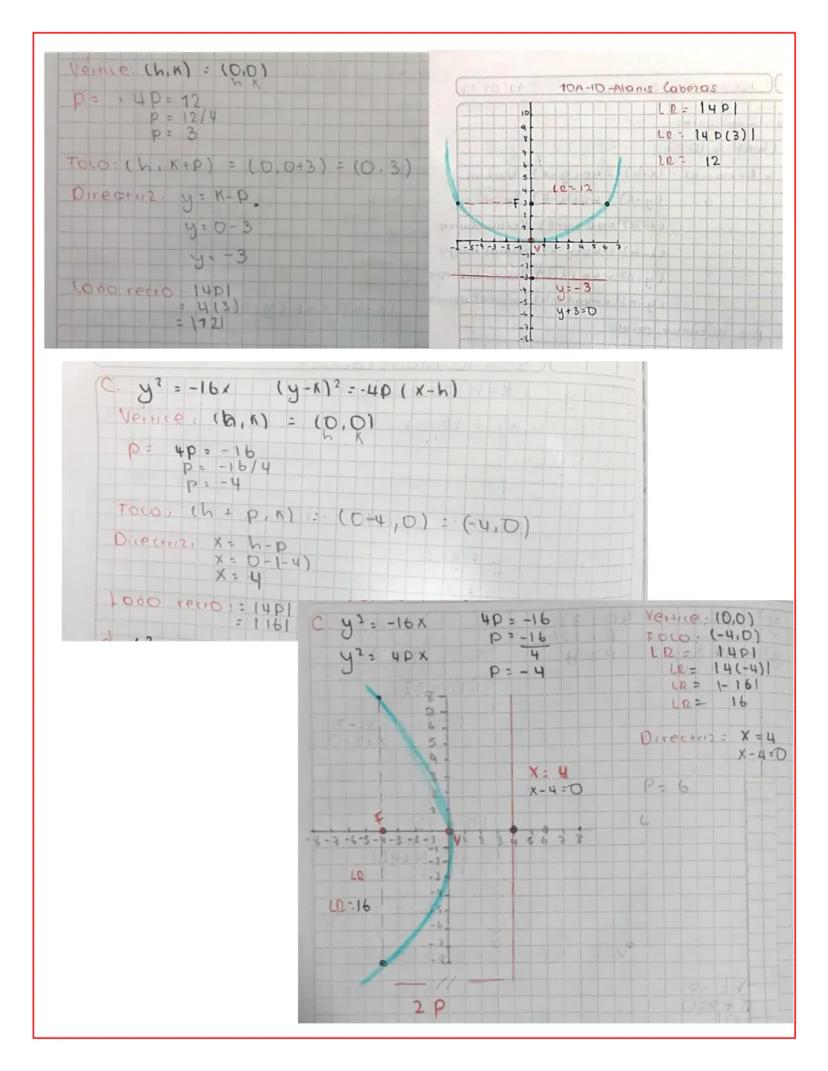 Vertice: (h,k) = (0,0)
h k
P= 4P= 12
P= 12/4
P= 3
Foco: (h, k+p) = (0,0+3) = (0,3)
Directriz: y= k-p.
y= 0-3
y= -3
Lado recto: |4p|
= 4(3)
= |12|
10A-10-Alanis Cabezas
LR= |4P|
LR= |4P(3)|
LR= 12
LR=12
F
V
y=-3
y+3=0
C. y² = -16x (y-k)² = -4p (x-h)
Vertice: (h,k) = (0,0)
h k
P= 4P= -16
P= -16/4
P= -4
Foco: (h + p, k) = (0-4,0) = (-4,0)
Directriz: x= h-p
x= 0-(-4)
x= 4
Lado recto: = |4P|
= |16|
C. y²= -16x 4P= -16 Vertice: (0,0)
P= -16 Foco: (-4,0)
4
y²= 4Px LR= |4P|
P= -4 LR= |4(-4)|
LR= |-16|
LR= 16
Directriz= x=4
x-4=0
x= 4
x-4=0
P= 6
F
V
-8-7-6-5-4-3-2-1 1 2 3 4 5 6 7 8
LR
LR=16
2 P